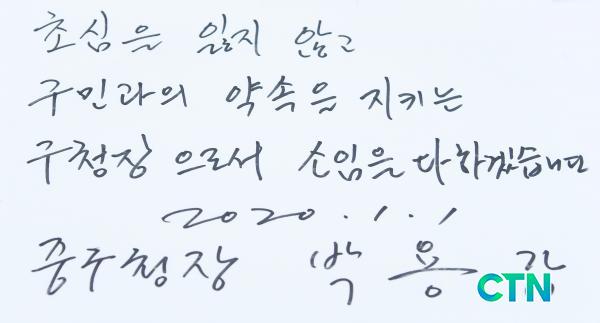 초심은 잃지 않고
구민과의 약속을 지키는
구청장으로서 소임을 다하겠습니다
2020.1.1
중구청장 박용
CTN